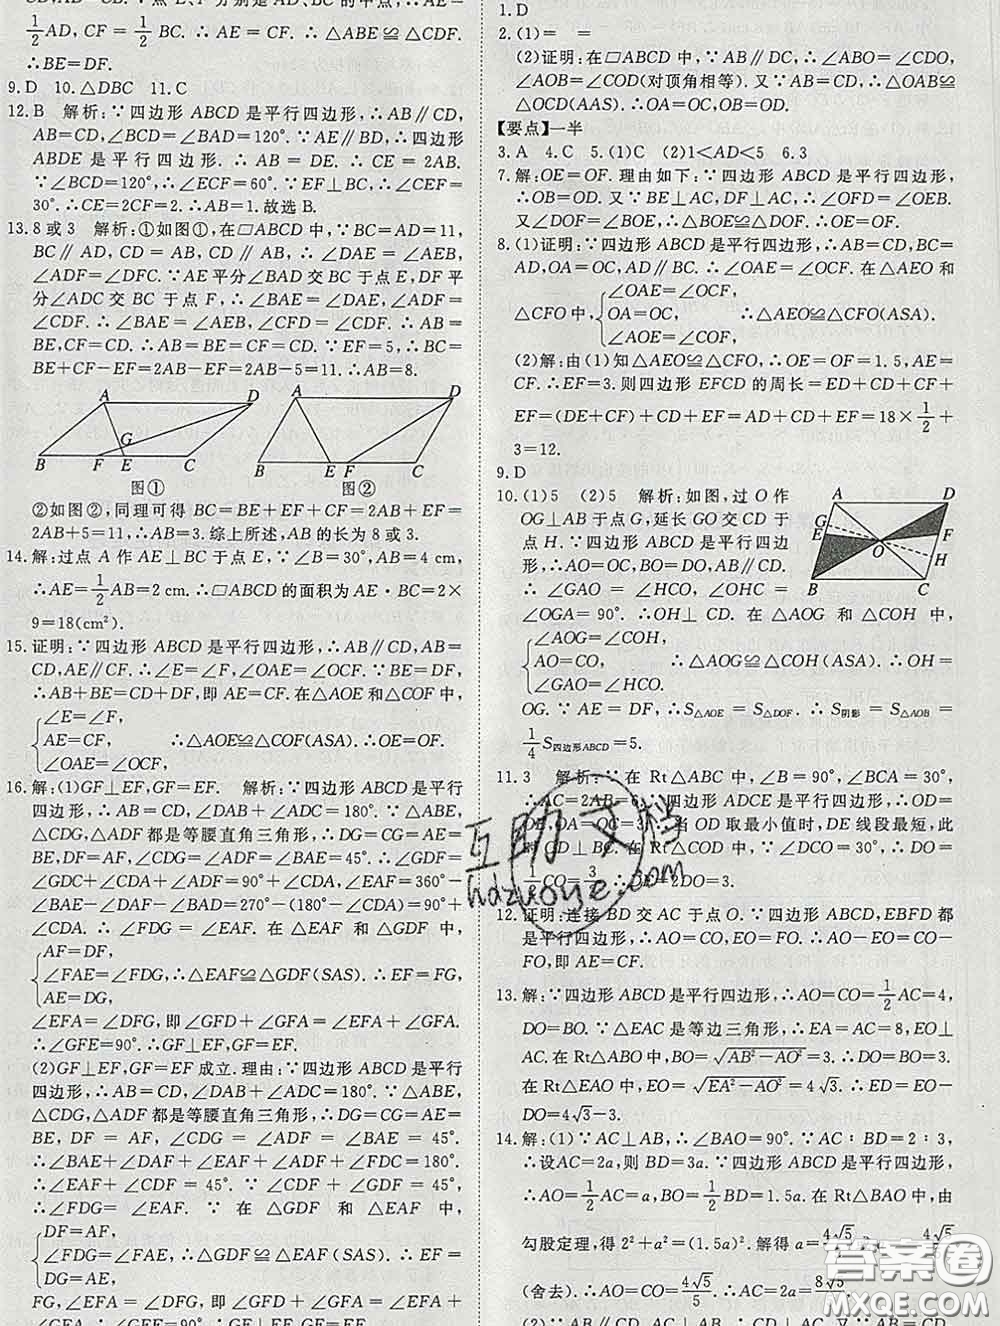 CD,AB=CD.∵点E、F分别是AD、BC的中点,∴AE=
1/2AD,CF=1/2BC.∴AE=CF.∴△ABE≌△CDF.
∴BE=DF.
9.D 10.△DBC 11.C
12.B 解析:∵四边形ABCD是平行四边形,∴AB∥CD,
AB=CD,∠BCD=∠BAD=120°.∵AE∥BD,∴四边形
ABDE是平行四边形.∴AB=DE.∴CE=2AB.
∵∠BCD=120°,∴∠ECF=60°.∵EF⊥BC,∴∠CEF=
30°.∴CE=2CF=2.∴AB=1.故选B.
13.8或3 解析:①如图①,在▱ABCD中,∵BC=AD=11,
BC∥AD,CD=AB,CD∥AB,∴∠DAE=∠AEB,
∠ADF=∠DFC.∵AE平分∠BAD交BC于点E,DF平
分∠ADC交BC于点F,∴∠BAE=∠DAE,∠ADF=
∠CDF.∴∠BAE=∠AEB,∠CFD=∠CDF.∴AB=
BE,CF=CD.∴AB=BE=CF=CD.∵EF=5,∴BC=
BE+CF-EF=2AB-EF=2AB-5=11.∴AB=8.
A D A D
G
B F E C B E F C
图① 图②
②如图②,同理可得BC=BE+EF+CF=2AB+EF=
2AB+5=11.∴AB=3.综上所述,AB的长为8或3.
14.解:过点A作AE⊥BC于点E,∵∠B=30°,AB=4 cm,
∴AE=1/2AB=2 cm.∴▱ABCD的面积为AE·BC=2×
9=18(cm²).
15.证明:∵四边形ABCD是平行四边形,∴AB∥CD,AB=
CD,AE∥CF.∴∠E=∠F,∠OAE=∠OCF.∵BE=DF,
∴AB+BE=CD+DF,即AE=CF.在△AOE和△COF中,
∠E=∠F,
AE=CF, ∴△AOE≌△COF(ASA).∴OE=OF.
∠OAE=∠OCF,
16.解:(1)GF⊥EF,GF=EF. 解析:∵四边形ABCD是平行
四边形,∴AB=CD,∠DAB+∠ADC=180°.∵△ABE,
△CDG,△ADF都是等腰直角三角形,∴DG=CG=AE=
BE,DF=AF,∠CDG=∠ADF=∠BAE=45°.∴∠GDF=
∠GDC+∠CDA+∠ADF=90°+∠CDA,∠EAF=360°-
∠BAE-∠DAF-∠BAD=270°-(180°-∠CDA)=90°+
∠CDA.∴∠FDG=∠EAF.在△EAF和△GDF中,
AF=DF,
∠FAE=∠FDG,∴△EAF≌△GDF(SAS).∴EF=FG,
AE=DG,
∠EFA=∠DFG,即∠GFD+∠GFA=∠EFA+∠GFA.
∴∠GFE=90°.∴GF⊥EF,GF=EF.
(2)GF⊥EF,GF=EF成立.理由:∵四边形ABCD是平行
四边形,∴AB=CD,∠DAB+∠ADC=180°.∵△ABE,
△CDG,△ADF都是等腰直角三角形,∴DG=CG=AE=
BE,DF=AF,∠CDG=∠ADF=∠BAE=45°.
∴∠BAE+∠DAF+∠EAF+∠ADF+∠FDC=180°.
∴∠EAF+∠CDF=45°.∵∠CDF+∠GDF=45°,
∴∠FDG=∠EAF.∵在△GDF和△EAF中,
DF=AF,
∠FDG=∠FAE,∴△GDF≌△EAF(SAS).∴EF=
DG=AE,
FG,∠EFA=∠DFG,即∠GFD+∠GFA=∠EFA+
∠GFA.∴∠GFE=90°.∴GF⊥EF,GF=EF.
1.D
2.(1)= =
(2)证明:在▱ABCD中,∵AB∥DC,∴∠ABO=∠CDO,
∠AOB=∠COD(对顶角相等).又∵AB=CD,∴△OAB≌
△OCD(AAS).∴OA=OC,OB=OD.
【要点】一半
3.A 4.C 5.(1)C (2)1<AD<5 6.3
7.解:OE=OF.理由如下:∵四边形ABCD是平行四边形,
∴OB=OD.又∵BE⊥AC,DF⊥AC,∴∠OFD=∠OEB.
又∠DOF=∠BOE,∴△BOE≌△DOF.∴OE=OF.
8.(1)证明:∵四边形ABCD是平行四边形,∴BC=
AD,OA=OC,AD∥BC.∴∠OAE=∠OCF.在△AEO和
△CFO中, ∠OAE=∠OCF,
OA=OC, ∴△AEO≌△CFO(ASA).
∠AOE=∠COF,
(2)解:由(1)知△AEO≌△CFO,∴OE=OF=1.5,AE=
CF.∴EF=3.则四边形EFCD的周长=ED+CD+CF+
EF=(DE+CF)+CD+EF=AD+CD+EF=18×1/2+
3=12.
9.D
10.(1)5 (2)5 解析:如图,过O作
OG⊥AB于点G,延长GO交CD于
点H.∵四边形ABCD是平行四边
形,∴AO=OC,BO=DO,AB∥CD.
∴∠GAO=∠HCO,∠OHC=
∠OGA=90°.∴OH⊥CD.在△AOG和△COH中,
A D
G
E F
O H
B C
∠AOG=∠COH,
AO=CO, ∴△AOG≌△COH(ASA).∴OH=
∠GAO=∠HCO.
OG.∵AE=DF,∴S△AOE=S△DOF.∴S阴影=S△AOB=
1/4S四边形ABCD=5.
11.3 解析:∵在Rt△ABC中,∠B=90°,∠BCA=30°,
∴AC=2AB=6.∵四边形ADCE是平行四边形,∴OD=
OE,OA=OC=3.∴当OD取最小值时,DE线段最短,此
时OD⊥BC.∴在Rt△COD中,∵∠DCO=30°,∴OD=
1/2CO=3/2.∴DE=2DO=3.
12.证明:连接BD交AC于点O.∵四边形ABCD,EBFD都
是平行四边形,∴AO=CO,EO=FO.∴AO-EO=CO-
FO,即AE=CF.
13.解:∵四边形ABCD是平行四边形,∴AO=CO=1/2AC=4,
DO=BO.∵△EAC是等边三角形,∴EA=AC=8,EO⊥
AC.在Rt△ABO中,BO=√(AB²-AO²)=3.∴DO=BO=3.
在Rt△EAO中,EO=√(EA²-AO²)=4√3.∴ED=
EO-DO=4√3-3.
14.解:(1)∵AC⊥AB,∴∠BAO=90°.∵AC∶BD=2∶3,
∴设AC=2a,则BD=3a.∵四边形ABCD是平行四边形,
∴AO=1/2AC=a,BO=1/2BD=1.5a.在Rt△BAO中,由
勾股定理,得2²+a²=(1.5a)².解得a=4√5/5,a=-4√5/5
(舍去).∴AO=CO=4√5/5.∴AC=2a=8√5/5.
互助文档
hdzuoye.com
答案圈
MXQE.COM